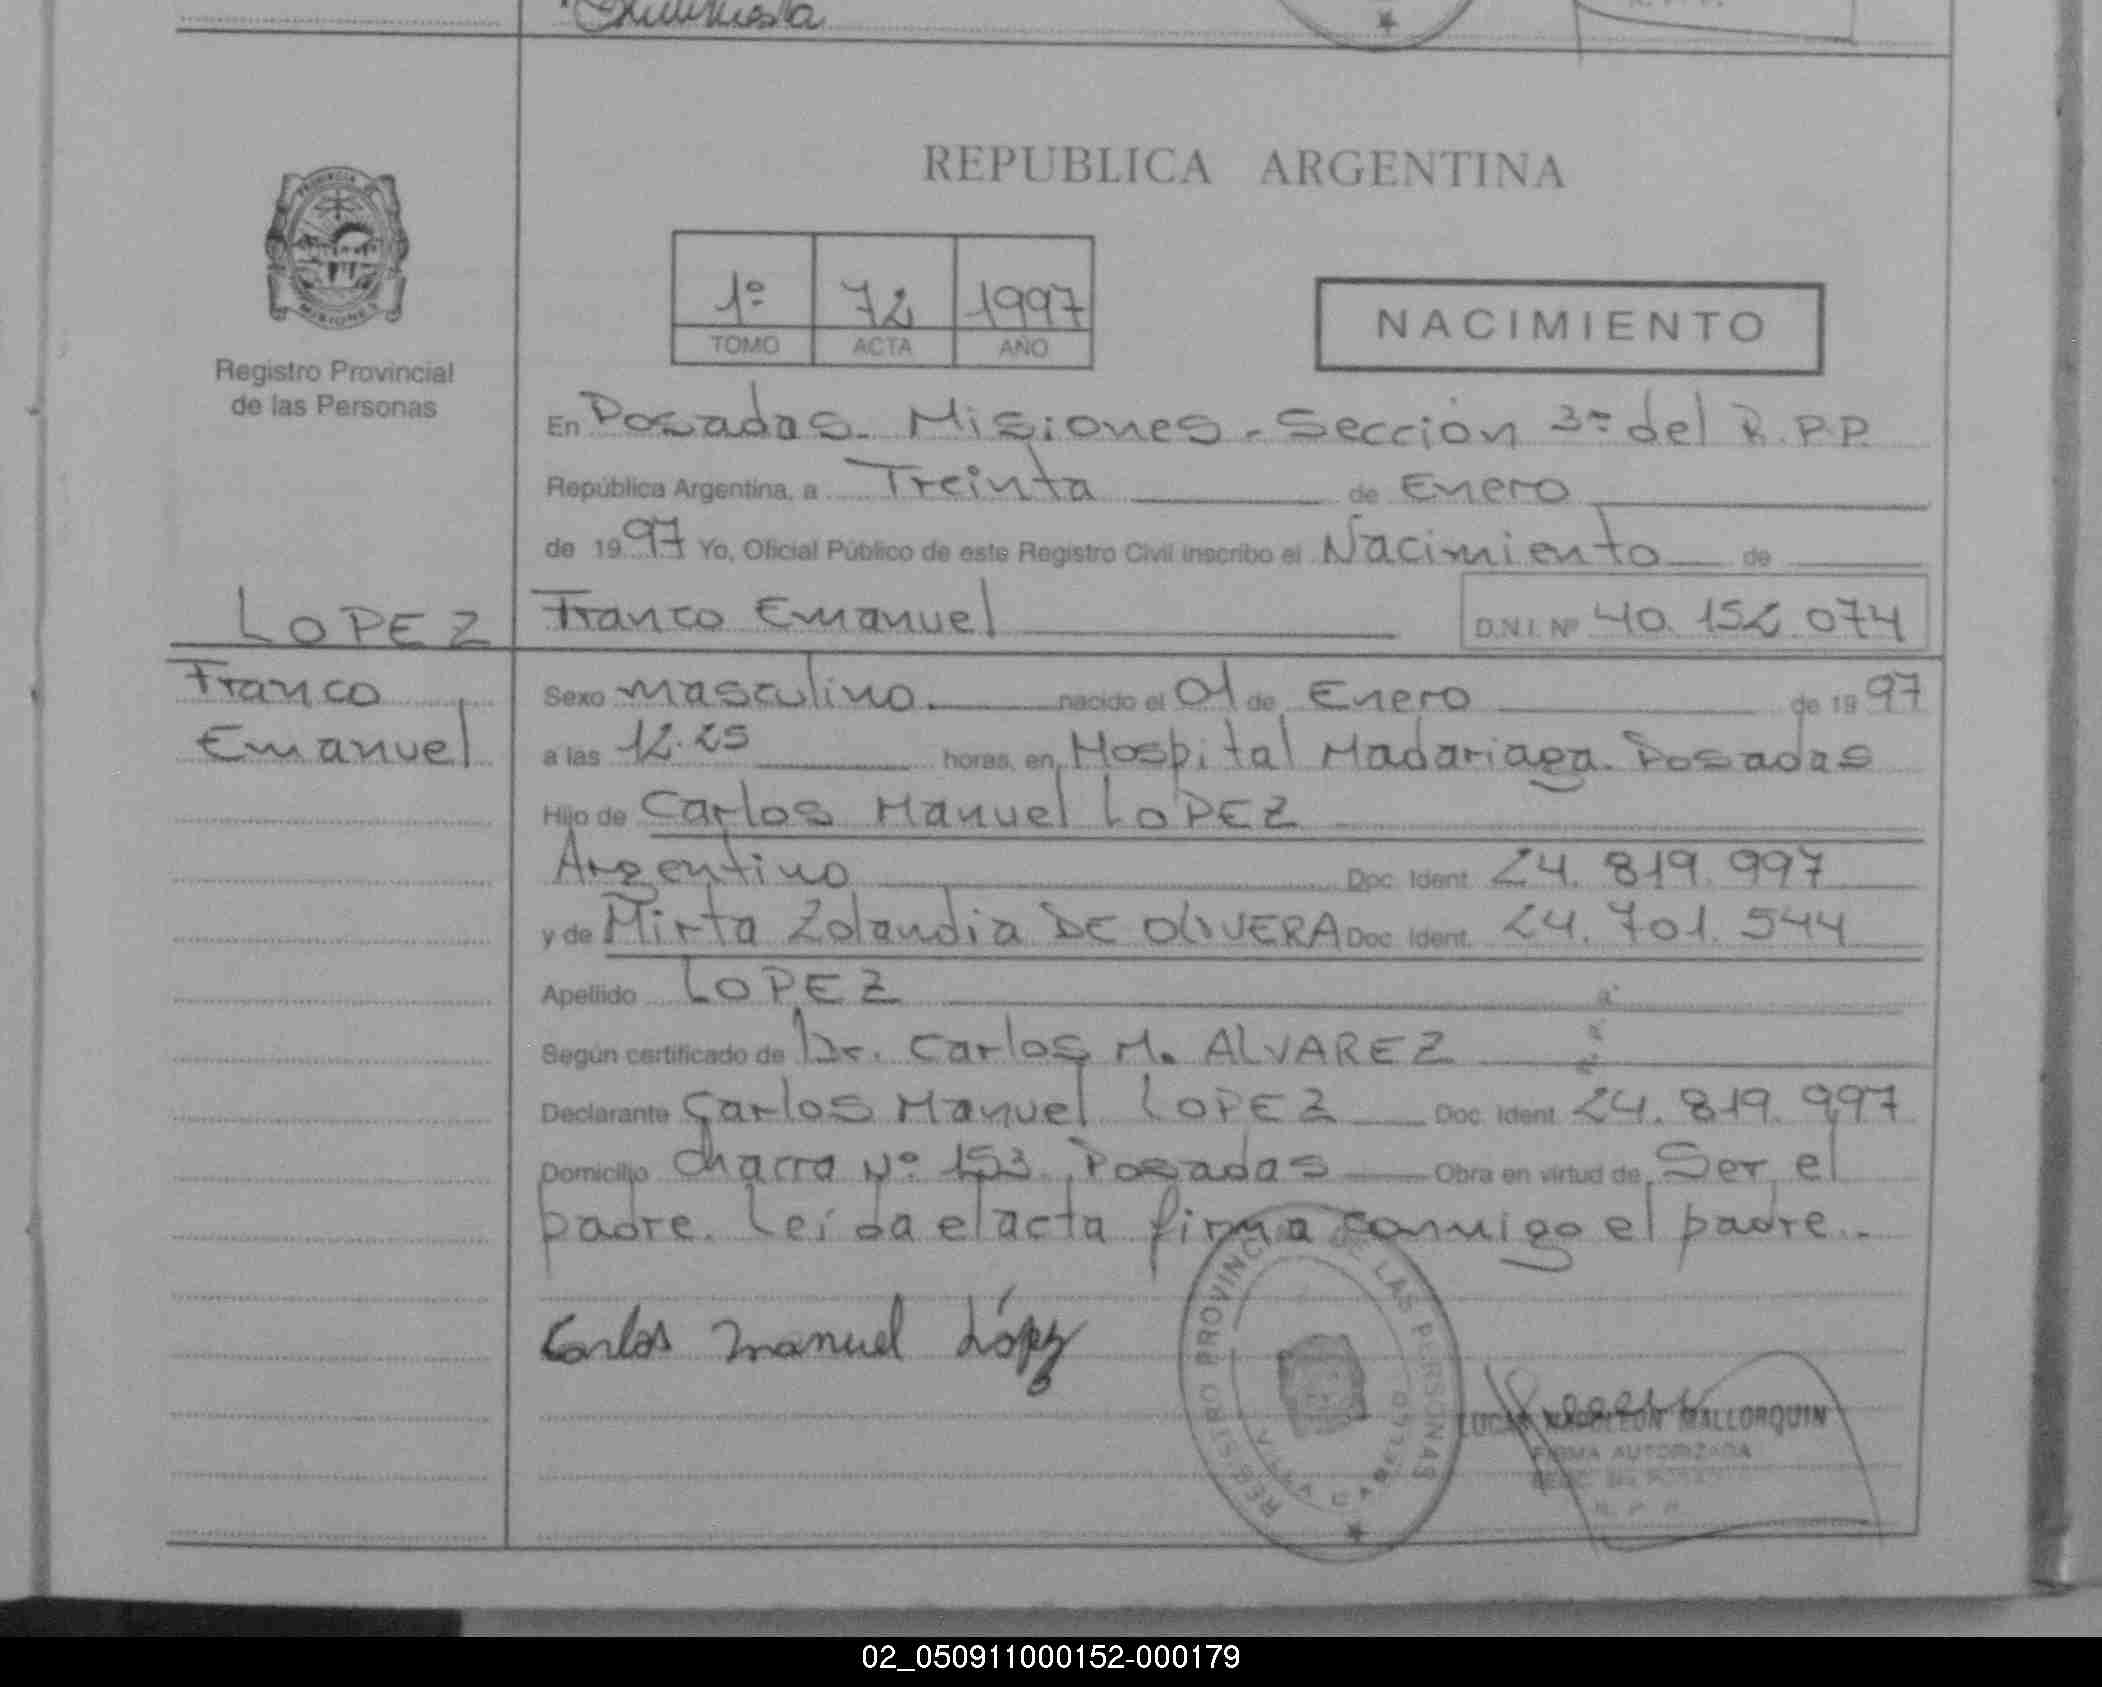 REPUBLICA ARGENTINA
PROVINCIA DE
MISIONES
Registro Provincial
de las Personas
1º 72 1997
TOMO ACTA AÑO
NACIMIENTO
En Posadas. Misiones. Sección 3ª del R.P.P.
República Argentina, a Treinta de Enero
de 1997 Yo, Oficial Público de este Registro Civil inscribo el Nacimiento de
LOPEZ
Franco Emanuel D.N.I. Nº 40.152.074
Franco
Emanuel
Sexo masculino. nacido el 01 de Enero de 1997
a las 12.25 horas, en Hospital Madariaga. Posadas
Hijo de Carlos Manuel LOPEZ
Argentino Doc. Ident. 24.819.997
y de Mirta Zolandia DE OLIVERA Doc. Ident. 24.701.544
Apellido LOPEZ
Según certificado de Dr. Carlos M. ALVAREZ
Declarante Carlos Manuel LOPEZ Doc. Ident. 24.819.997
Domicilio Chacra Nº 153. Posadas Obra en virtud de Ser el
padre. Leída el acta firma conmigo el padre.-
Carlos Manuel López
REGISTRO PROVINCIAL DE LAS PERSONAS
VILLA CABELLO
LUCAS NAPOLEON MALLORQUIN
FIRMA AUTORIZADA
R. P. P.
02_050911000152-000179